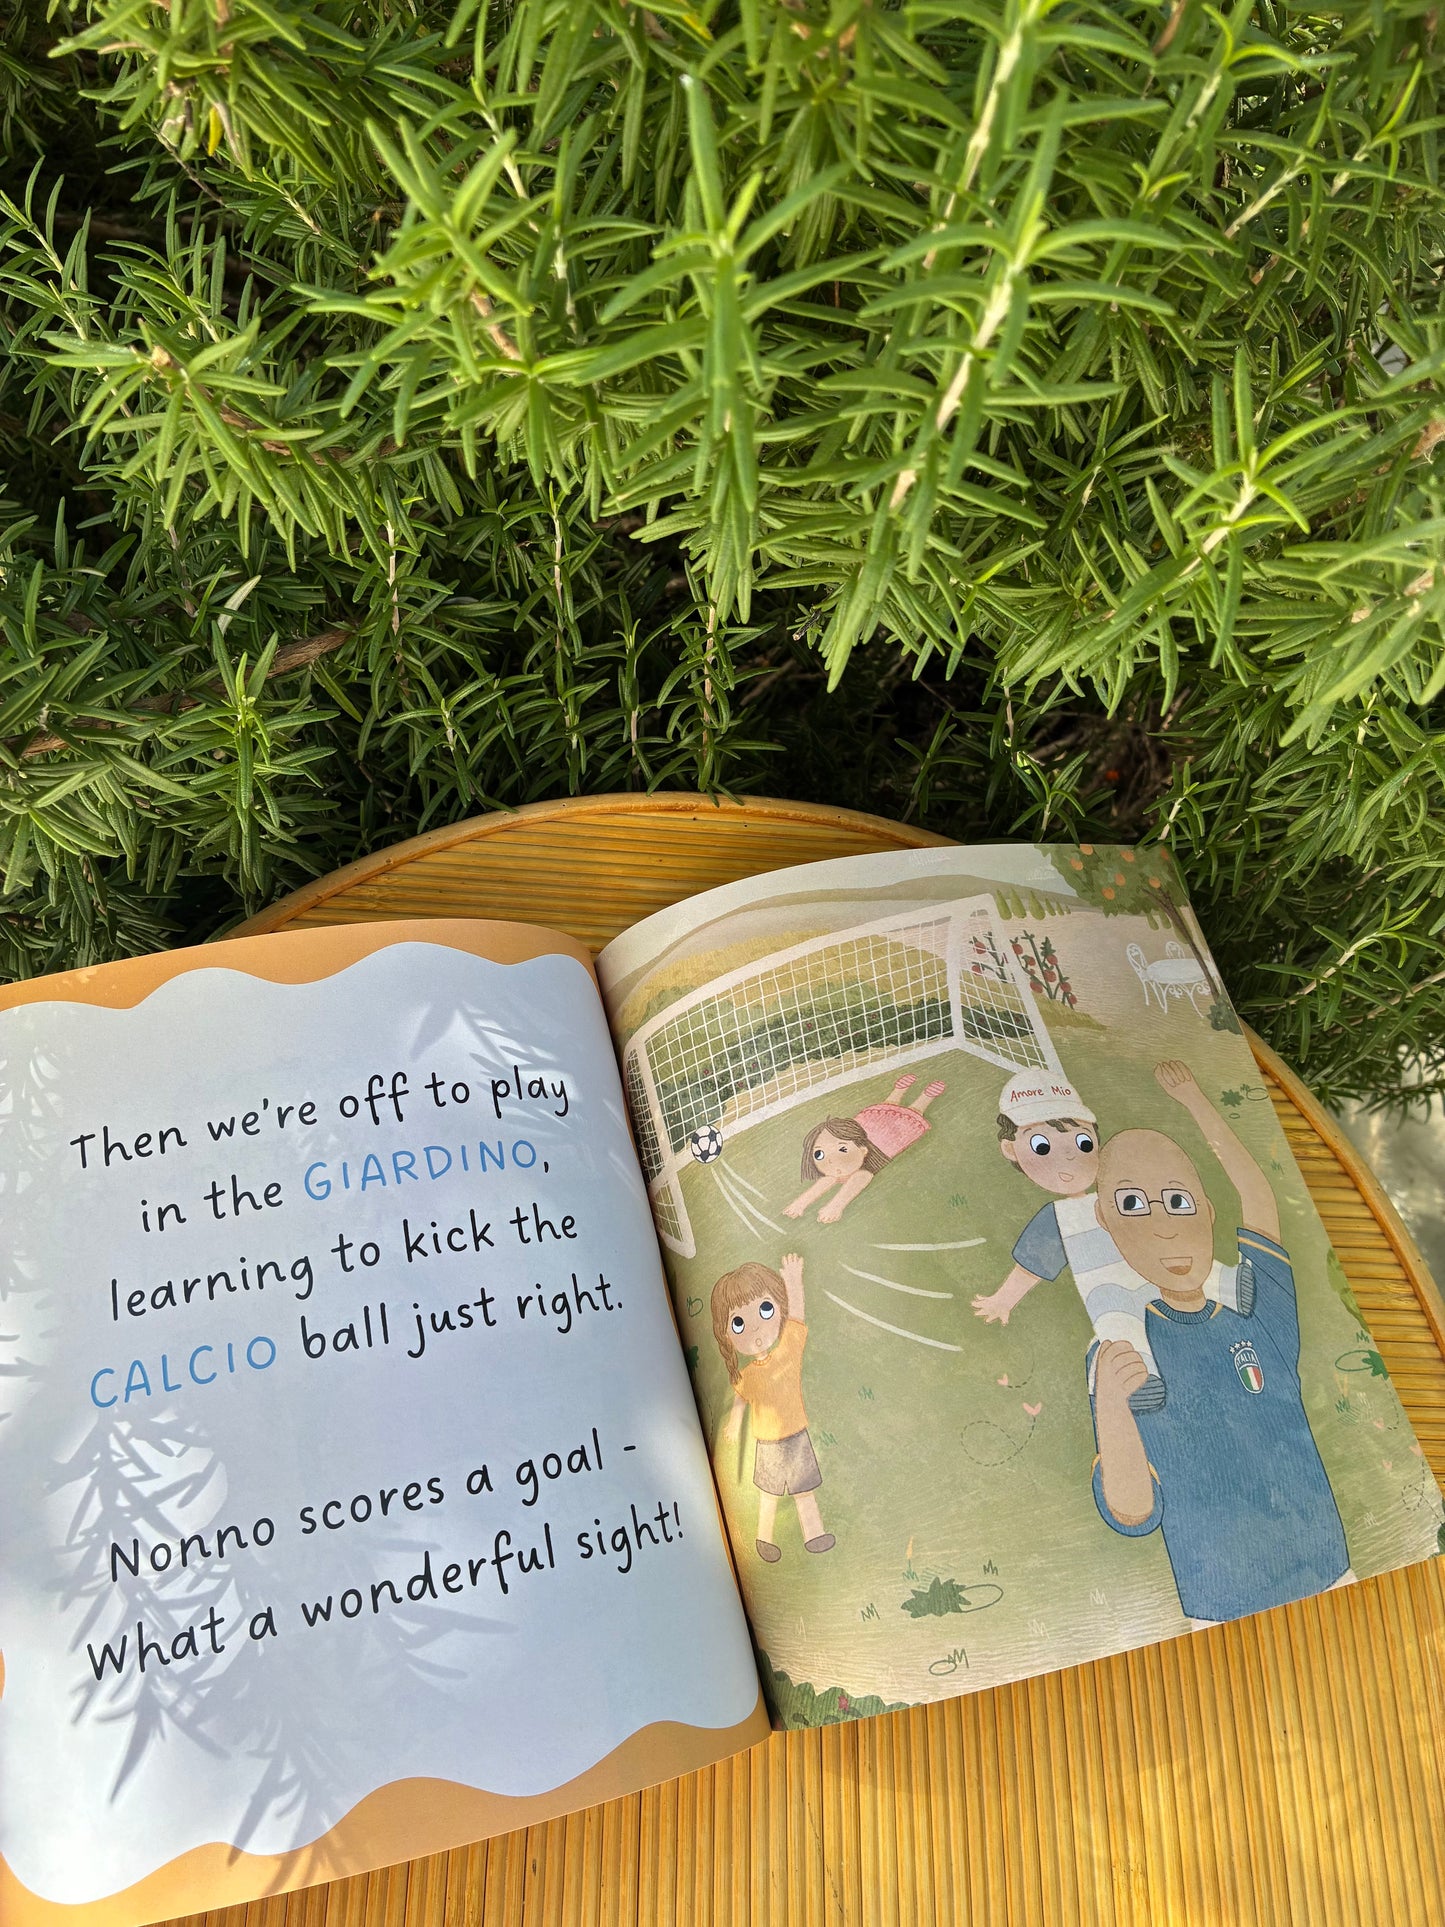 Then we're off to play
in the GIARDINO,
learning to kick the
CALCIO ball just right.
Nonno scores a goal -
What a wonderful sight!
Amore Mio
ITALIA